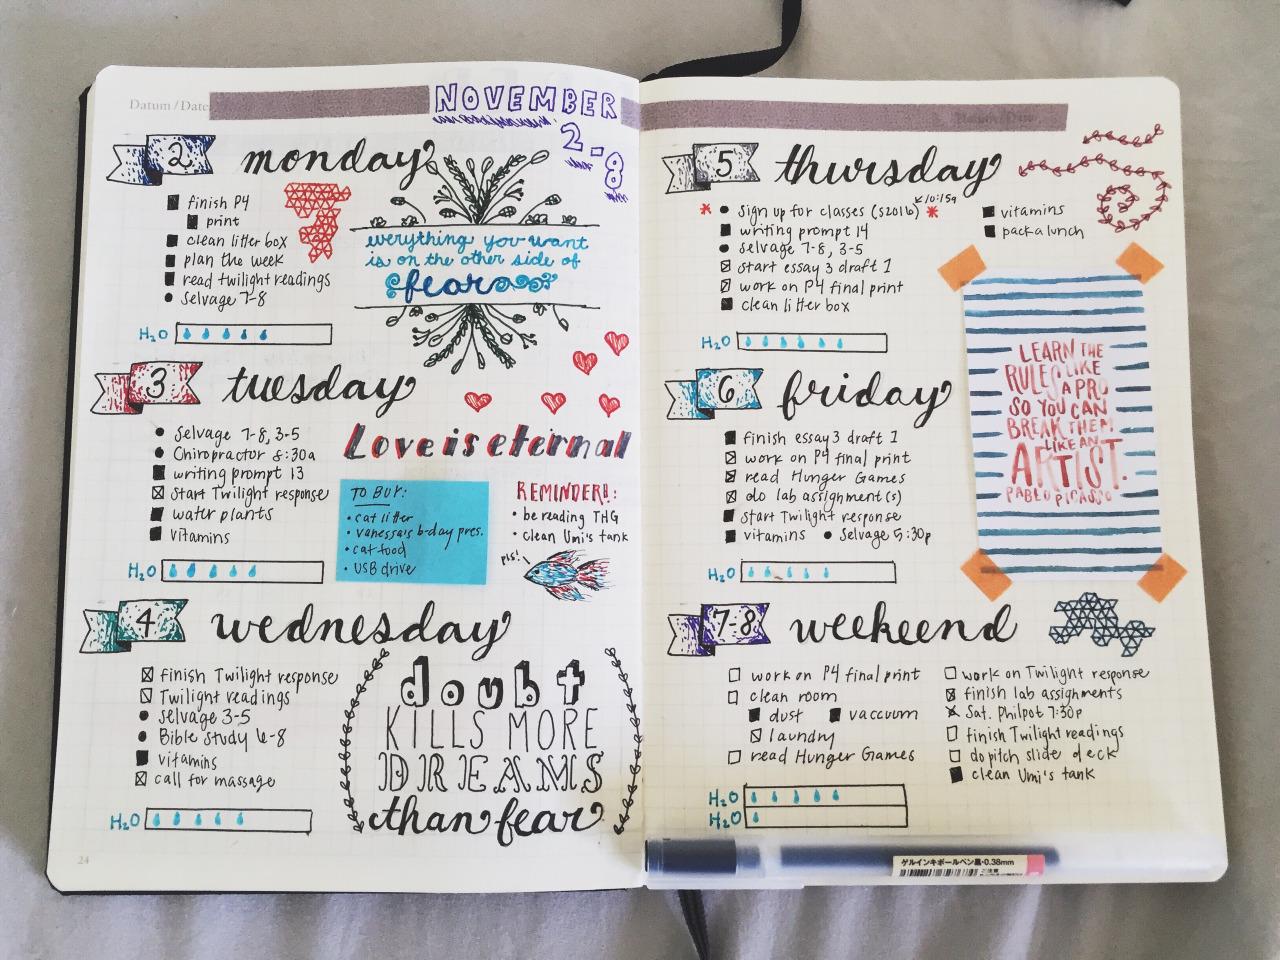 Datum/Date
NOVEMBER
2-8
2 monday
finish P4
print
clean litter box
plan the week
read twilight readings
Selvage 7-8
H2O
everything you want
is on the other side of
fear
3 tuesday
Selvage 7-8, 3-5
Chiropractor 8:30a
writing prompt 13
Start Twilight response
water plants
vitamins
H2O
Love is eternal
TO BUY:
• cat litter
• vanessa's b-day pres.
• cat food
• USB drive
REMINDER!:
• be reading THG
• clean Umi's tank
pls!
4 wednesday
finish Twilight response
Twilight readings
Selvage 3-5
Bible Study 6-8
vitamins
call for massage
H2O
doubt
KILLS MORE
DREAMS
than fear
24
5 thursday
10:15a
* Sign up for classes (S2016) *
writing prompt 14
Selvage 7-8, 3-5
start essay 3 draft 1
work on P4 final print
clean litter box
vitamins
pack a lunch
H2O
6 friday
finish essay 3 draft 1
work on P4 final print
read Hunger Games
do lab assignment(s)
Start Twilight response
vitamins • Selvage 5:30p
H2O
LEARN THE
RULES LIKE
A PRO
SO YOU CAN
BREAK THEM
LIKE AN
ARTIST.
PABLO PICASSO
7-8 weekend
work on P4 final print
clean room
dust vaccuum
laundry
read Hunger Games
work on Twilight response
finish lab assignments
Sat. Philpot 7:30p
finish Twilight readings
do pitch slide deck
clean Umi's tank
H2O
H2O
ゲルインキボールペン黒・0.38mm